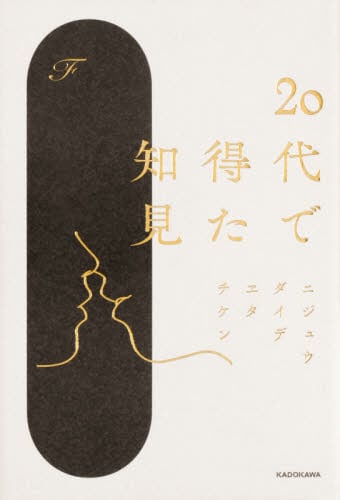 F
20代で
得た
知見
ニジュウ
ダイデ
エタ
チケン
KADOKAWA